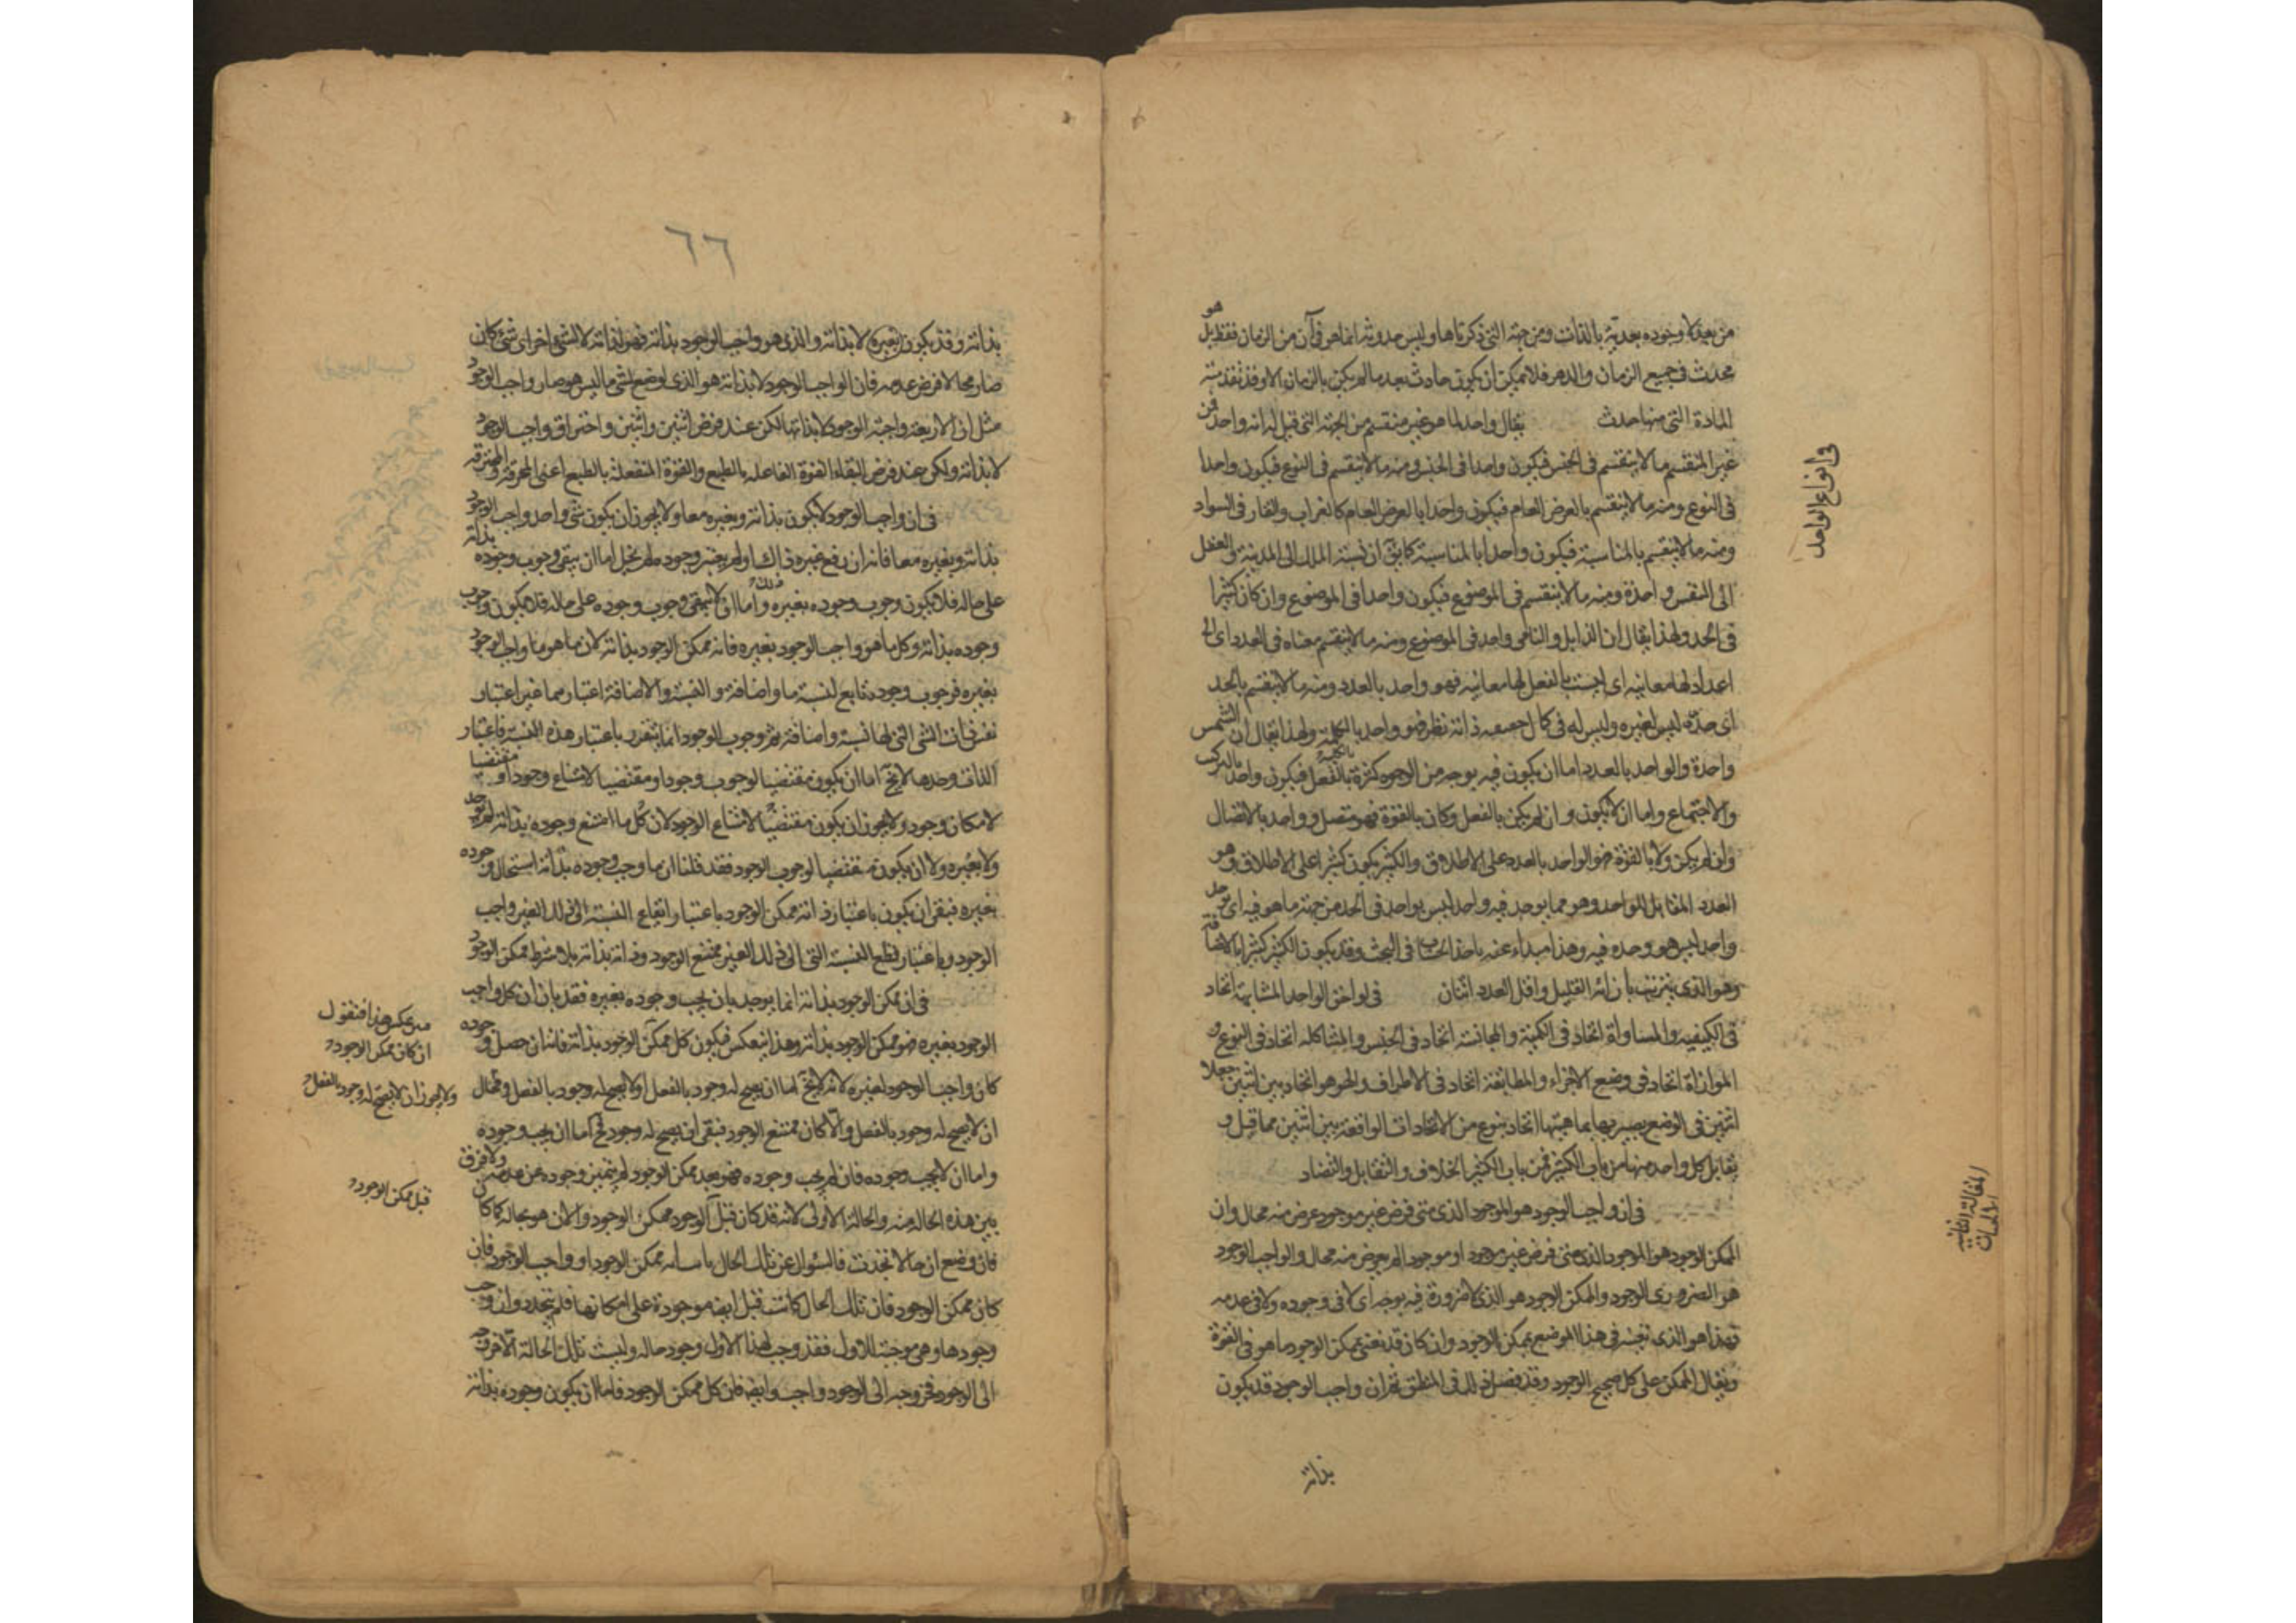 من بعد لا وجوده بعدية بالذات ومن جهة التي ذكرناها وليس حدوثه انما هو في آن من الزمان فقط بل هو
محدث في جميع الزمان والدهر فلا يمكن ان يكون حادث بعد ما لم يكن بالزمان الا وقد تقدمته
المادة التي منها حدث يقال واحد لما هو غير منقسم من الجهة التي قيل له انه واحد فمن
غير المنقسم ما لا ينقسم في الجنس فيكون واحدا في الجنس ومنه ما لا ينقسم في النوع فيكون واحدا
في النوع ومنه ما لا ينقسم بالعرض العام فيكون واحدا بالعرض العام كالغراب والقار في السواد
ومنه ما لا ينقسم بالمناسبة فيكون واحدا بالمناسبة كما يق ان نسبة الملك الى المدينة والعقل
الى النفس واحدة ومنه ما لا ينقسم في الموضوع فيكون واحدا في الموضوع وان كان كثيرا
في الحد ولهذا يقال ان الذابل والنامي واحد في الموضوع ومنه ما لا ينقسم معناه في العدد اي لا
اعداد لها معانيه اي ليست بالفعل لها معانيه فهو واحد بالعدد ومنه ما لا ينقسم بالحد
اي حده ليس لغيره وليس له في كمال حقيقة ذاته نظير فهو واحد بالكلية ولهذا يقال ان الشمس
واحدة والواحد بالعدد اما ان يكون فيه بوجه من الوجوه كثرة بالفعل فيكون واحد بالتركيب
والاجتماع واما ان لا يكون وان لم يكن بالفعل وكان بالقوة فهو متصل وواحد بالاتصال
وان لم يكن ولا بالقوة فهو الواحد بالعدد على الاطلاق والكثير يكون كثيرا على الاطلاق وهو
العدد المقابل للواحد وهو مما يوجد فيه واحد ليس بواحد في الحد من جهة ما هو فيه اي يوجد
واحد ليس هو وحده فيه وهذا مبداء عنه ياخذ الحساب في البحث وقد يكون الكثير كثيرا بالاضافة
وهو الذي يترتب بازائه القليل واقل العدد اثنان في لواحق الواحد المشابهة اتحاد
في الكيفيه والمساواة اتحاد في الكمية والمجانسة اتحاد في الجنس والمشاكله اتحاد في النوع و
الموازاة اتحاد في وضع الاجزاء والمطابقة اتحاد في الاطراف والهو هو اتحاد بين اثنين جعلا
اثنين في الوضع يصير بها بما هيتها اتحاد بنوع من الاتحادات الواقعة بين اثنين مما قيل و
يقابل كل واحد منها من باب الكثير فمن باب الكثير الخلاف والتقابل والتضاد
في ان واجب الوجود هو الموجود الذي متى فرض غير موجود عرض منه محال وان
الممكن الوجود هو الموجود الذي متى فرض غير موجود او موجودا لم يعرض منه محال والواجب الوجود
هو الضروري الوجود والممكن الوجود هو الذي لا ضرورة فيه بوجه اي لا في وجوده ولا في عدمه
فهذا هو الذي نعنيه في هذا الموضع بممكن الوجود وان كان قد نعني بممكن الوجود ما هو في القوة
ويقال الممكن على كل صحيح الوجود وقد فصل ذلك في المنطق ثم ان واجب الوجود قد يكون
بذاته
في انواع الواحد
المقالة الثانية
الالهيات
٦٦
بذاته وقد يكون بغيره لا بذاته والذي هو واجب الوجود بذاته فهو لذاته لا لشيء اخر اي شيء كان
صار محالا فرض عدمه فان الواجب الوجود لا بذاته هو الذي لو وضع شيء ما ليس هو صار واجب الوجود
مثل ان الاربعة واجبة الوجود لا بذاتها لكن عند فرض اثنين واثنين واحتراق واجب الوجود
لا بذاته ولكن عند فرض التقاء القوة الفاعله بالطبع والقوة المنفعلة بالطبع اعني المحرقة والمحترقه
في ان واجب الوجود لا يكون بذاته وبغيره معا ولا يجوز ان يكون شيء واحد واجب الوجود
بذاته وبغيره معا فانه ان رفع غيره ذاك او لم يعتبر وجوده لم يخل اما ان يبقى وجوب وجوده بذاته
على حاله فلا يكون وجوب وجوده بغيره واما ان لا يبقى وجوب وجوده على حاله فلا يكون وجوب
وجوده بذاته وكل ما هو واجب الوجود بغيره فانه ممكن الوجود بذاته لان ما هو ما واجب الوجود
بغيره فوجوب وجوده تابع لنسبة ما واضافة والنسبة والاضافة اعتبارهما غير اعتبار
نفس ذات الشيء التي لها نسبة واضافة ثم وجوب الوجود انما يتقرر باعتبار هذه النسبة فاعتبار
الذات وحدها لا يخ اما ان يكون مقتضيا لوجوب وجود او مقتضيا لامتناع وجود او مقتضيا
لامكان وجود ولا يجوز ان يكون مقتضيا لامتناع الوجود لان كل ما امتنع وجوده بذاته لم يوجد
ولا بغيره ولا ان يكون مقتضيا لوجوب الوجود فقد قلنا ان ما وجب وجوده بذاته استحال وجوده
بغيره فبقي ان يكون باعتبار ذاته ممكن الوجود باعتبار ايقاع النسبة الى ذلك الغير واجب
الوجود وباعتبار قطع النسبة التي الى ذلك الغير ممتنع الوجود وذاته بذاته بلا شرط ممكن الوجود
في ان ممكن الوجود بذاته انما يوجد بان يجب وجوده بغيره فقد بان ان كل واجب
الوجود بغيره فهو ممكن الوجود بذاته وهذا ينعكس فيكون كل ممكن الوجود بذاته فانه ان حصل وجوده
كان واجب الوجود لغيره لانه لا يخ اما ان يصح له وجود بالفعل او لا يصح له وجود بالفعل ومحال
ان لا يصح له وجود بالفعل والا كان ممتنع الوجود فبقي ان يصح له وجود فح اما ان يجب وجوده
واما ان لا يجب وجوده فان لم يجب وجوده فهو بعد ممكن الوجود لم يتميز وجوده عن عدمه ولا فرق
بين هذه الحالة منه والحالة الاولى لانه قد كان قبل الوجود ممكن الوجود والان هو بحاله كما كان
فان وضع ان حالا تجددت فالسؤال عن تلك الحال ممكن الوجود او واجب الوجود فان
كان ممكن الوجود فان تلك الحال كانت قبل ايضه موجودة على امكانها فلم يتجدد وان وجب
وجودها وهي موجبة للاول فقد وجب لهذا الاول وجود حاله وليست تلك الحالة الا خروجه
الى الوجود فخروجه الى الوجود واجب وايضه فان كل ممكن الوجود فاما ان يكون وجوده بذاته
عكس هذا فنقول
ان كان ممكن الوجود
ولا يجوز ان لا يصح له وجود بالفعل
قبل ممكن الوجود